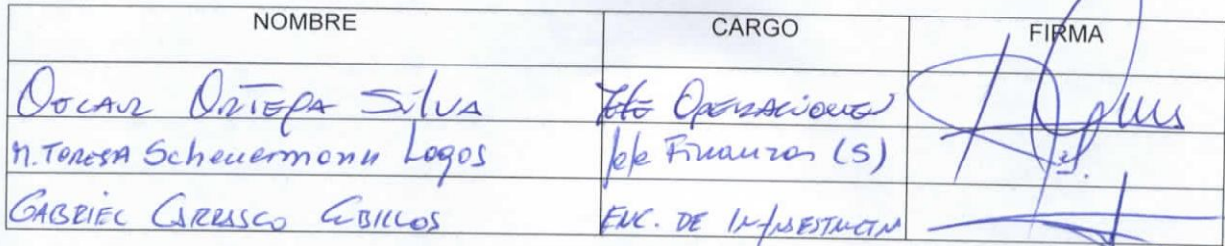 NOMBRE CARGO FIRMA
Oscar Ortega Silva Jefe Operaciones
M. Teresa Scheuermann Lagos Jefe Finanzas (S)
GABRIEL CARRASCO CUBILLOS ENC. DE Infraestructura